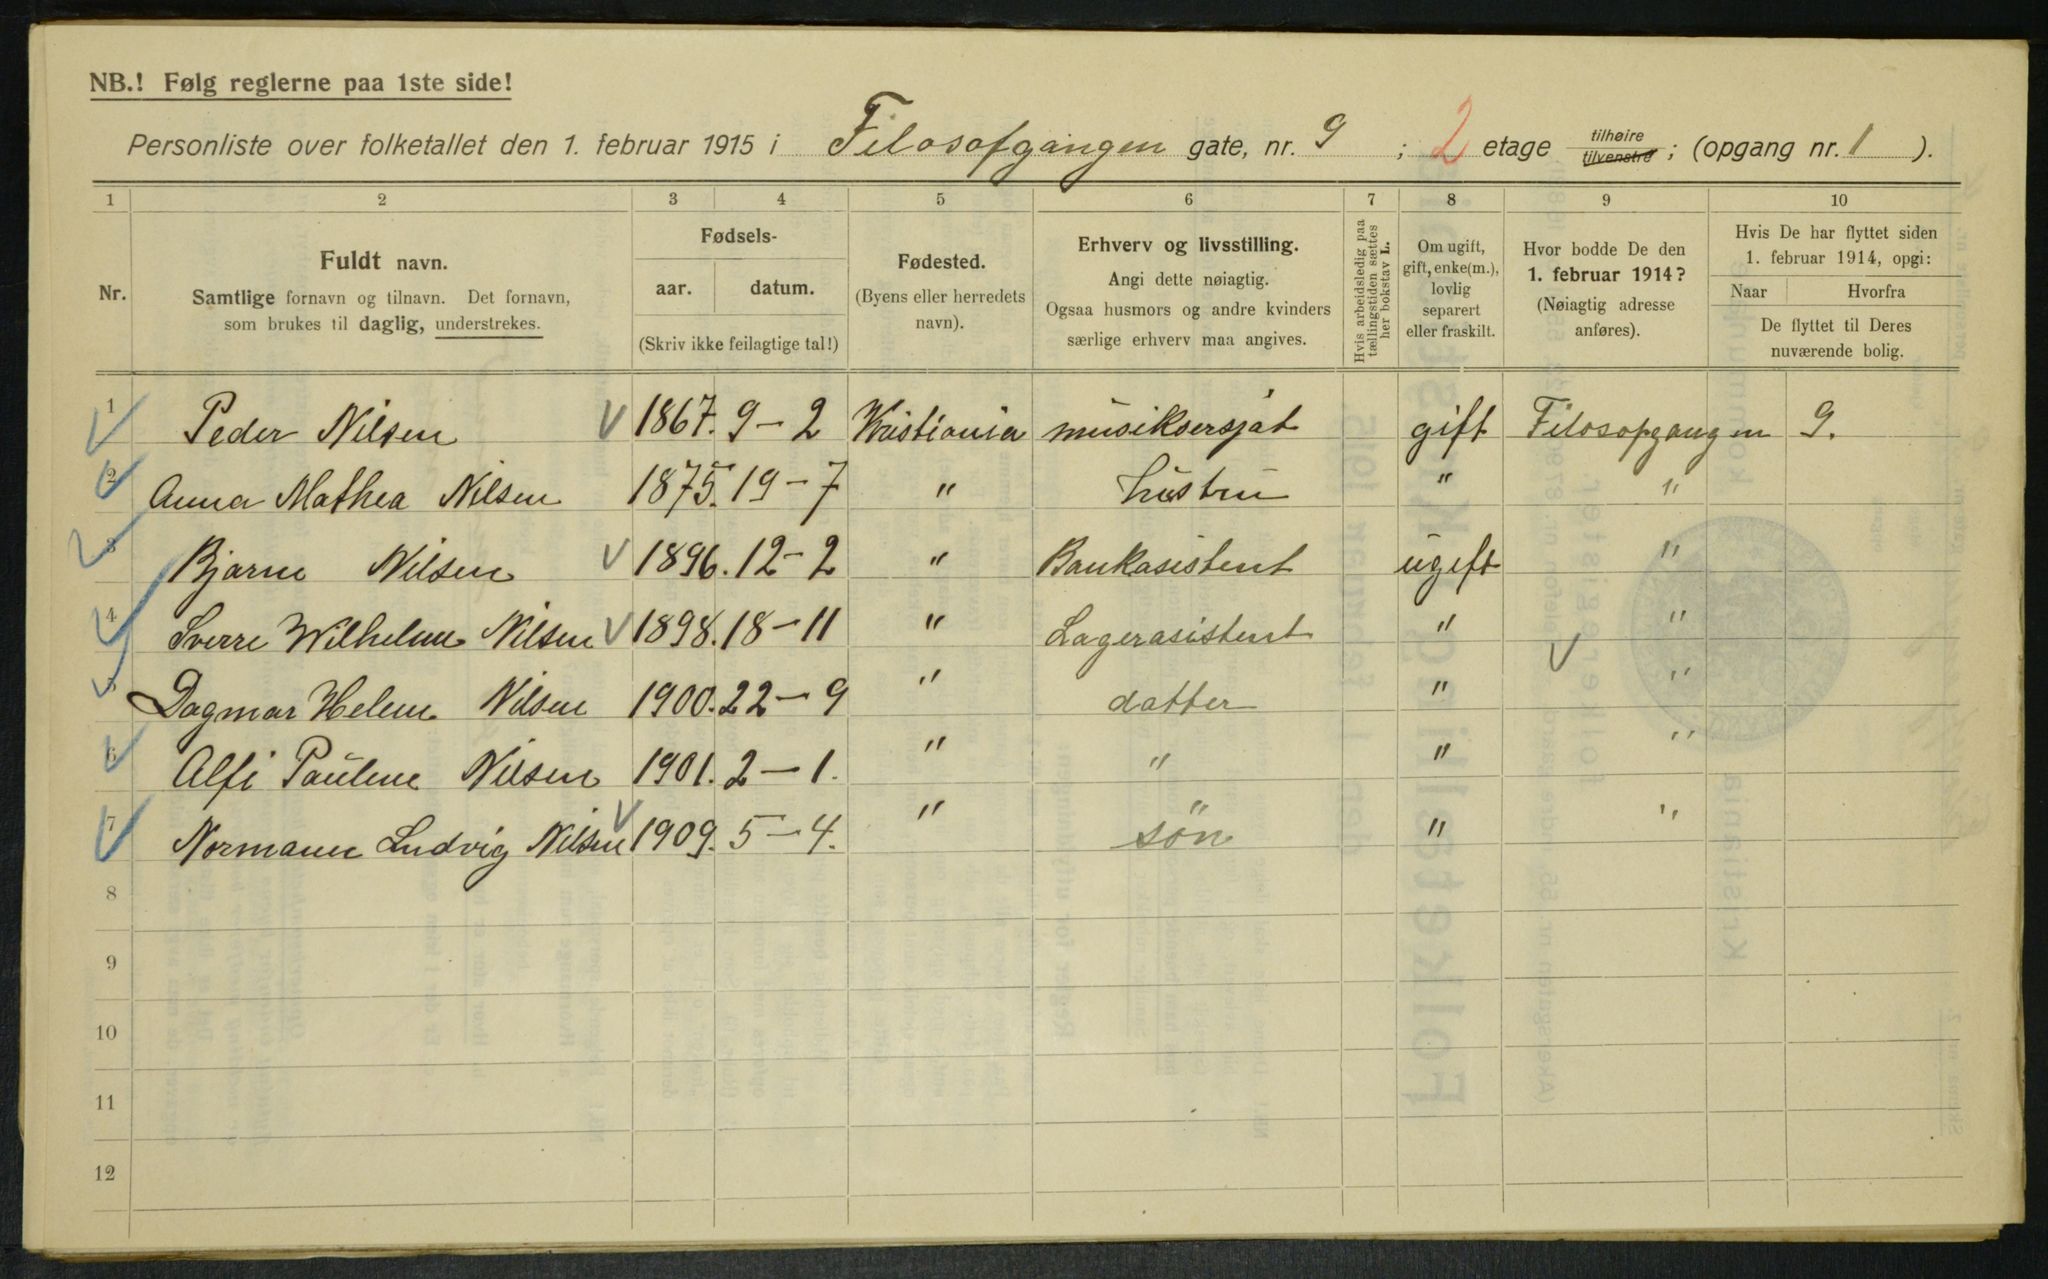 NB.! Følg reglerne paa 1ste side!
Personliste over folketallet den 1. februar 1915 i Filosofgangen gate, nr. 9 ; 2 etage tilhøire tilvenstre ; (opgang nr. 1 ).
1 2 3 4 5 6 7 8 9 10
Nr.
Fuldt navn.
Samtlige fornavn og tilnavn. Det fornavn,
som brukes til daglig, understrekes.
Fødsels-
aar. datum.
(Skriv ikke feilagtige tal!)
Fødested.
(Byens eller herredets
navn).
Erhverv og livsstilling.
Angi dette nøiagtig.
Ogsaa husmors og andre kvinders
særlige erhverv maa angives.
Hvis arbeidsledig paa
tællingstiden sættes
her bokstav L.
Om ugift,
gift, enke(m.),
lovlig
separert
eller fraskilt.
Hvor bodde De den
1. februar 1914?
(Nøiagtig adresse
anføres).
Hvis De har flyttet siden
1. februar 1914, opgi:
Naar Hvorfra
De flyttet til Deres
nuværende bolig.
1 Peder Nilsen 1867. 9-2 Kristiania gift Filosofgangen 9.
2 Anna Mathea Nilsen 1875. 19-7 " hustru " "
3 Bjarne Nilsen 1896. 12-2 " Bankasistent ugift "
4 Sverre Wilhelm Nilsen 1898. 18-11 " Lagerasistent " "
5 Dagmar Helene Nilsen 1900. 22-9 " datter " "
6 Alfi Pauline Nilsen 1901. 2-1. " " " "
7 Normann Ludvig Nilsen 1909. 5-4. " søn " "
8
9
10
11
12